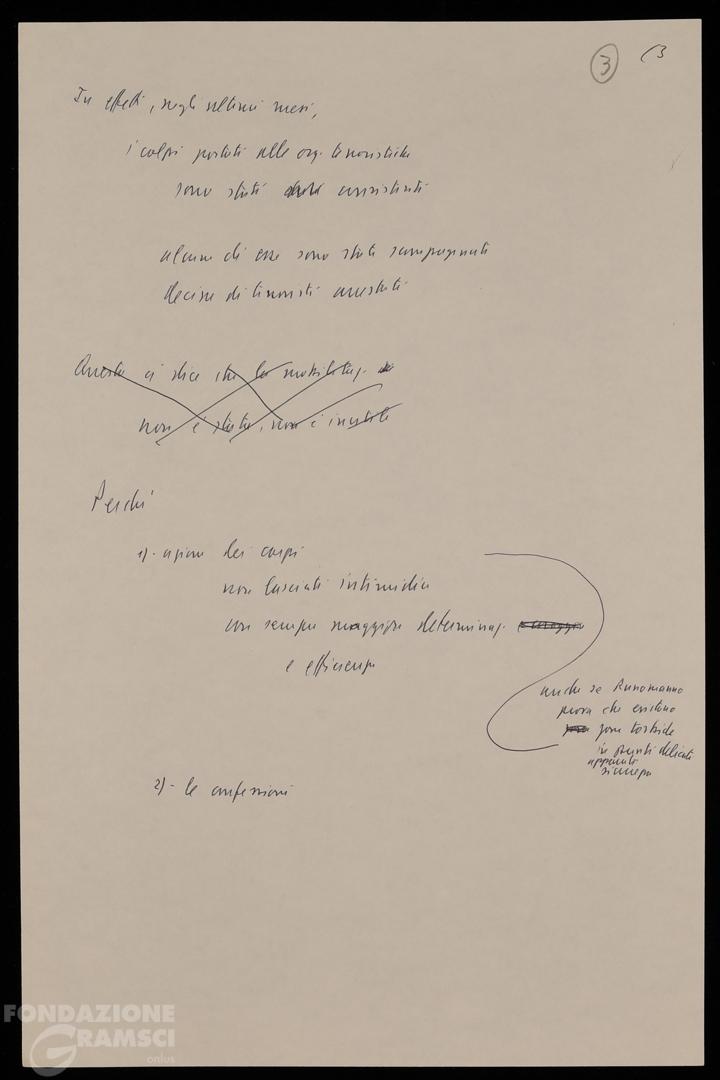 3 (3
In effetti, negli ultimi mesi,
i colpi portati alle org. terroristiche
sono stati consistenti
alcune di esse sono state scompaginati
decine di terroristi arrestati
Questo ci dice che la mobilitaz.
non è stata, non è inutile
Perché
1)- azione dei corpi
non lasciati intimidire
con sempre maggiore determinaz.
e efficienza
anche se Russomanno
prova che esistono
zone torbide
in punti delicati
apparati
sicurezza
2)- le confessioni
FONDAZIONE
GRAMSCI
onlus